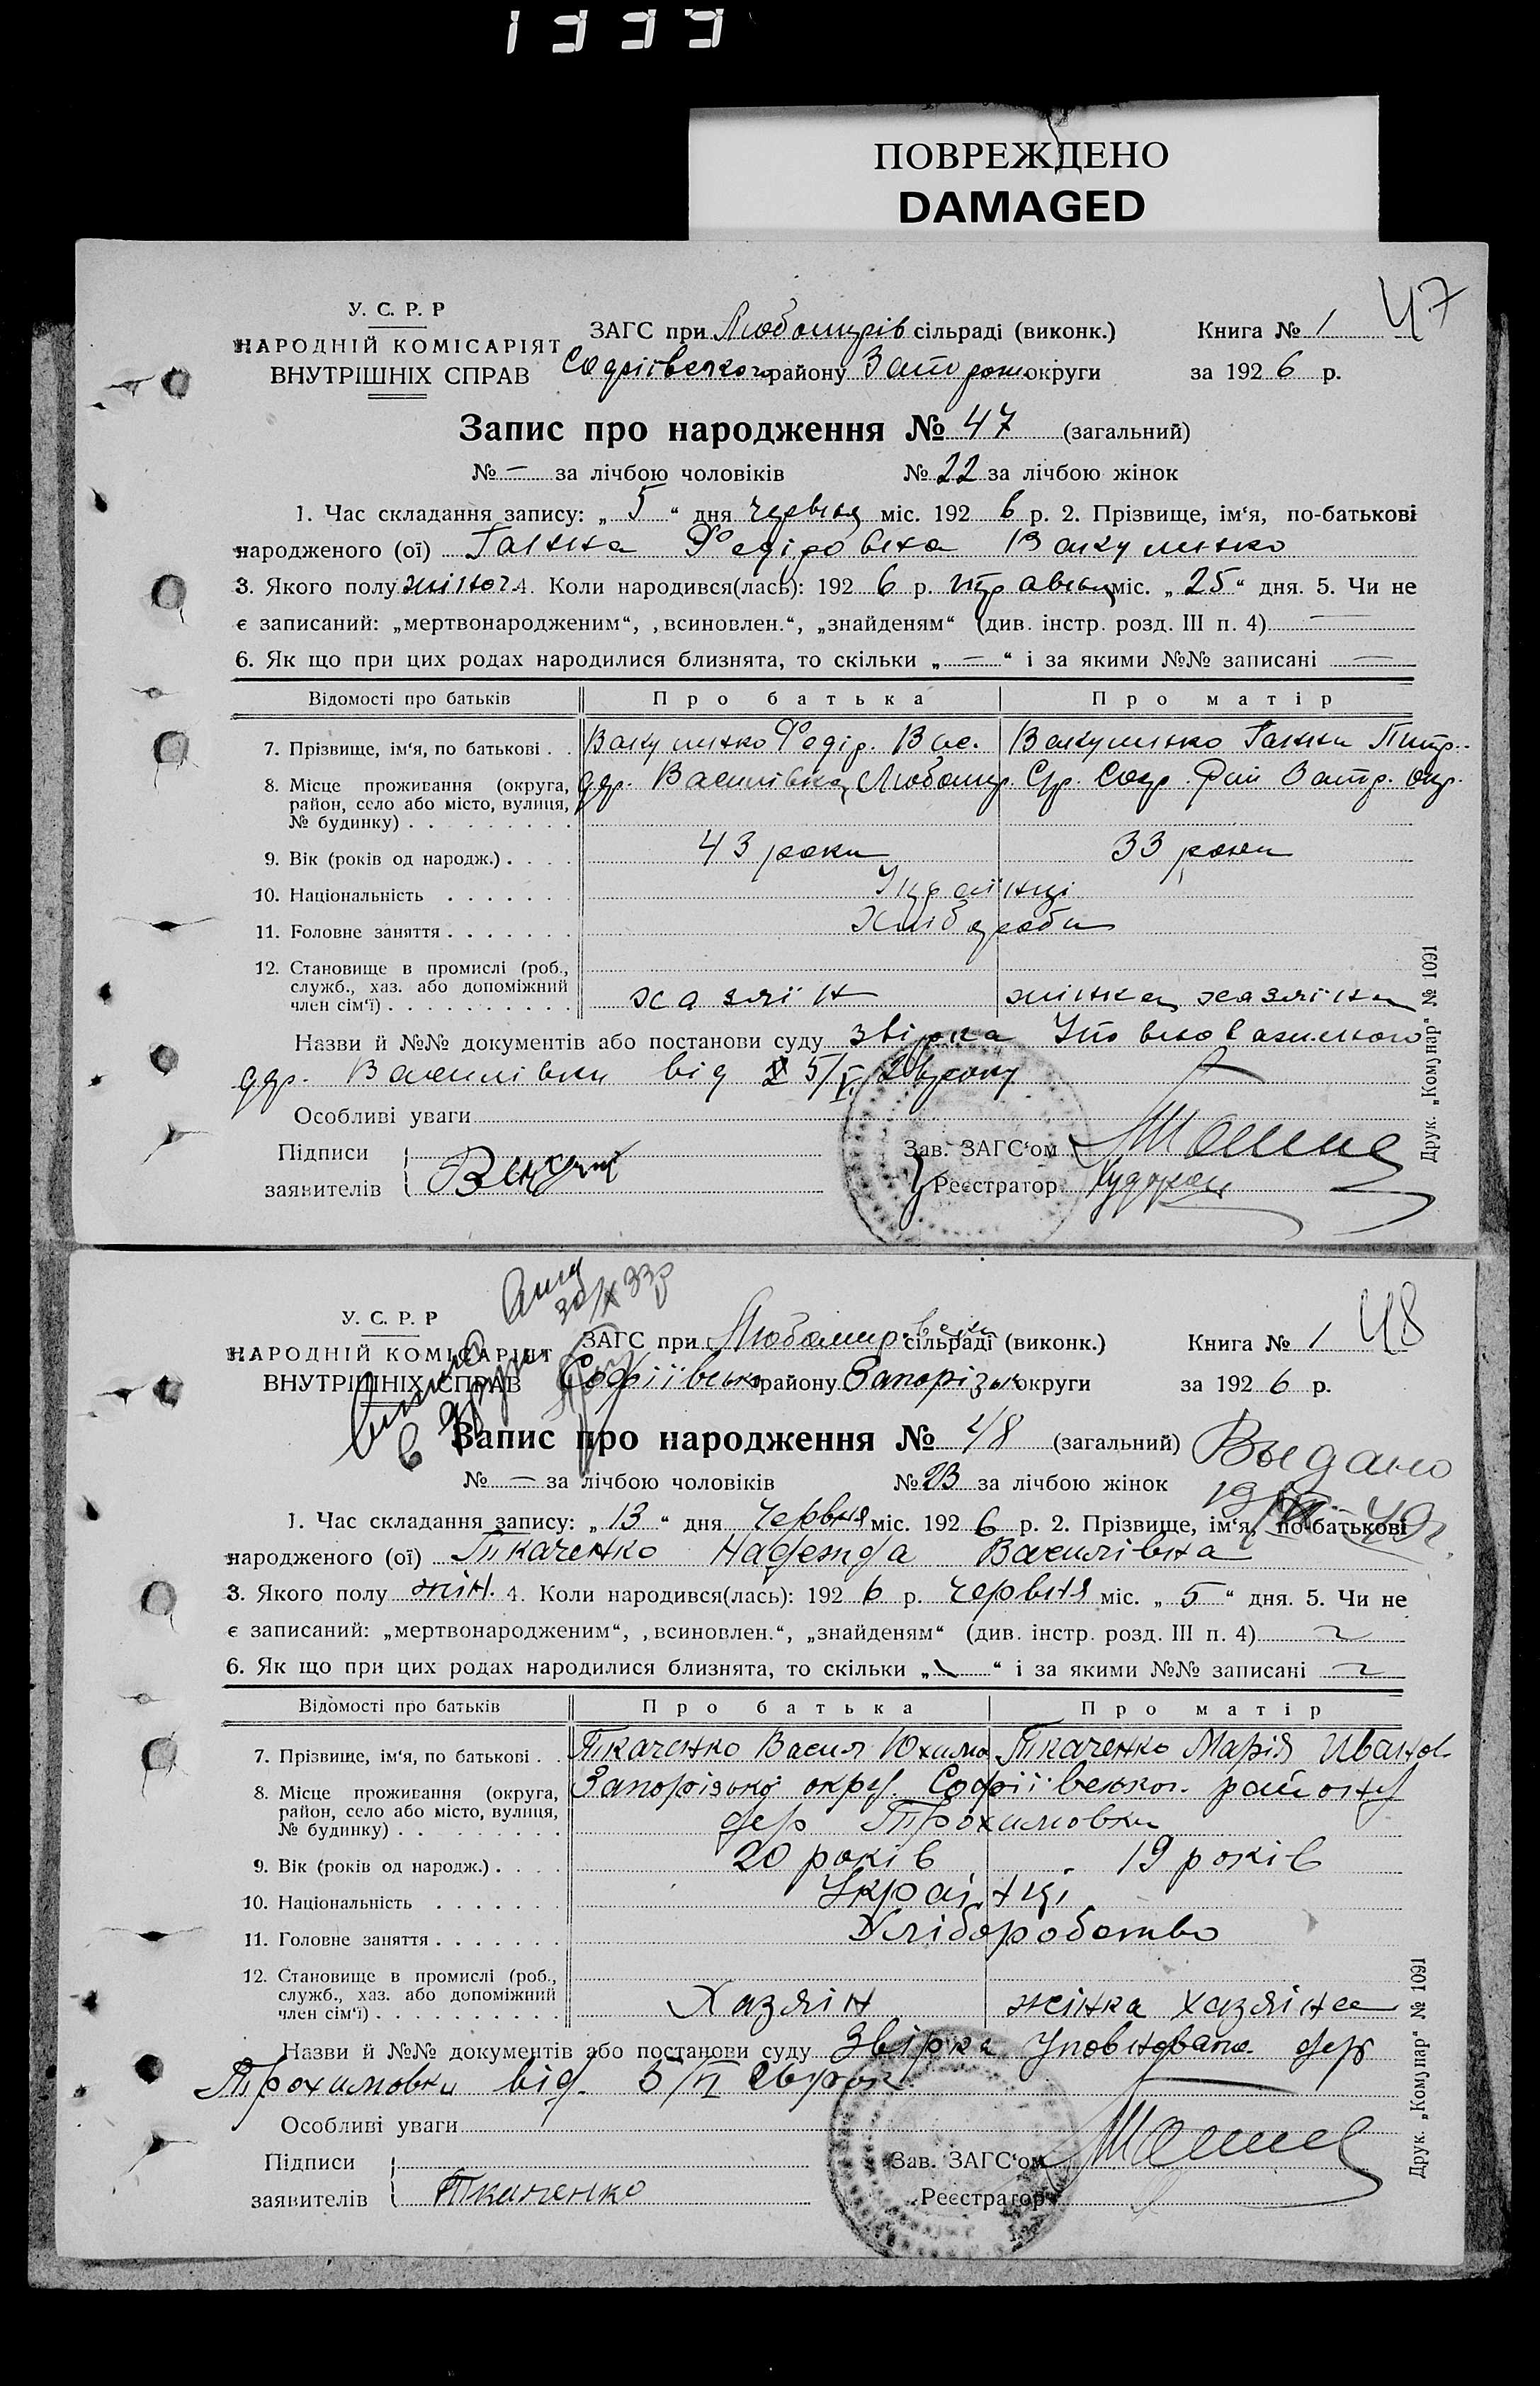 1333
ПОВРЕЖДЕНО
DAMAGED
47
У. С. Р. Р
НАРОДНІЙ КОМІСАРІЯТ
ВНУТРІШНІХ СПРАВ
ЗАГС при Любомирів сільраді (виконк.) Книга № 1
Софіївського району Запорож округи за 192 6 р.
Запис про народження № 47 (загальний)
№ — за лічбою чоловіків № 22 за лічбою жінок
1. Час складання запису: „ 5 “ дня червня міс. 192 6 р. 2. Прізвище, ім‘я, по-батькові
народженого (ої) Ганна Федіровна Вакуленко
3. Якого полу жіноч. 4. Коли народився(лась): 192 6 р. травня міс. „ 25 “ дня. 5. Чи не
є записаний: „мертвонародженим“, „всиновлен.“, „знайденям“ (див. інстр. розд. III п. 4) —
6. Як що при цих родах народилися близнята, то скільки „ — “ і за якими №№ записані —
Відомості про батьків Про батька Про матір
7. Прізвище, ім‘я, по батькові . . Вакуленко Федір. Вас. Вакуленко Ганна Питр.
8. Місце проживання (округа, дер. Василівка, Любомир. Ср. Соф. Рай Запр. окр.
район, село або місто, вулиця,
№ будинку)
9. Вік (років од народж.) 43 роки 33 роки
10. Національність Українці
11. Головне заняття Хлібороби
12. Становище в промислі (роб.,
служб., хаз. або допоміжний
член сім‘ї) хазяїн жінка хазяїна
Назви й №№ документів або постанови суду звірка Уповноваженого
дер. Василівки від 5/VI 26 року
Особливі уваги
Підписи Зав. ЗАГС‘ом
заявителів Реєстратор
Друк. „Комунар“ № 1091
48
У. С. Р. Р
НАРОДНІЙ КОМІСАРІЯТ
ВНУТРІШНІХ СПРАВ
30/X 33р
ЗАГС при Любомирівськ сільраді (виконк.) Книга № 1
Софіївсько району Запорізьк округи за 192 6 р.
Запис про народження № 48 (загальний)
Выдано
№ — за лічбою чоловіків № 23 за лічбою жінок
1. Час складання запису: „ 13 “ дня червня міс. 192 6 р. 2. Прізвище, ім‘я, по-батькові
народженого (ої) Ткаченко Надежда Василівна
3. Якого полу жін. 4. Коли народився(лась): 192 6 р. червня міс. „ 5 “ дня. 5. Чи не
є записаний: „мертвонародженим“, „всиновлен.“, „знайденям“ (див. інстр. розд. III п. 4)
6. Як що при цих родах народилися близнята, то скільки „ “ і за якими №№ записані
Відомості про батьків Про батька Про матір
7. Прізвище, ім‘я, по батькові . . Ткаченко Васил Юхимо Ткаченко Марія Иванов
8. Місце проживання (округа, Запорізької окру. Софіївськог. району
район, село або місто, вулиця, дер Трохимовки
№ будинку)
9. Вік (років од народж.) 20 років 19 років
10. Національність Українці
11. Головне заняття Хліборобство
12. Становище в промислі (роб.,
служб., хаз. або допоміжний
член сім‘ї) Хазяін жінка хазяіна
Назви й №№ документів або постанови суду Звірка Уповнована. дер
Трохимовки від 5/VI 26 рок.
Особливі уваги
Підписи Зав. ЗАГС‘ом
заявителів Ткаченко Реєстратор
Друк. „Комунар“ № 1091